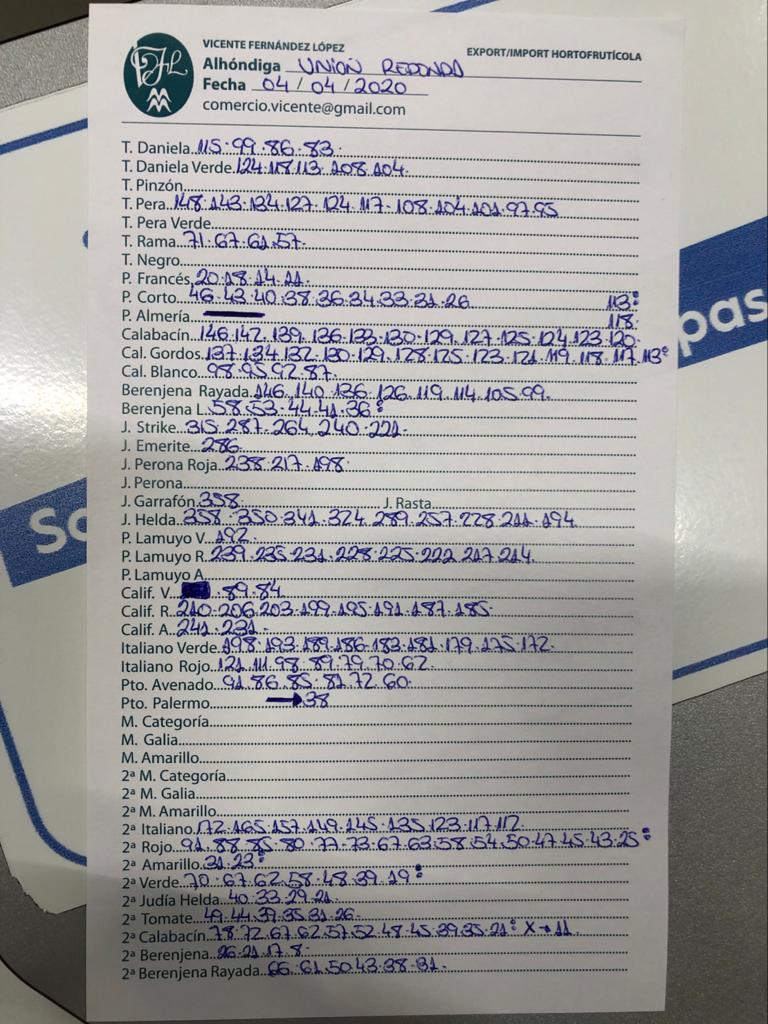 VICENTE FERNÁNDEZ LÓPEZ
EXPORT/IMPORT HORTOFRUTÍCOLA
Alhóndiga UNION REDONDO
Fecha 04/04/2020
comercio.vicente@gmail.com
T. Daniela 115.99.86.83.
T. Daniela Verde 124.118.113.108.104.
T. Pinzón
T. Pera 148.143.134.127.124.117.108.104.101.97.95
T. Pera Verde
T. Rama 71.67.61.57.
T. Negro
P. Francés 20.18.14.11.
P. Corto 46.43.40.38.36.34.33.31.26 113:
P. Almería 118.
Calabacín 146.142.139.136.133.130.129.127.125.124.123.120.
Cal. Gordos 137.134.132.130.129.128.125.123.121.119.118.117.113:
Cal. Blanco 98.95.92.87.
Berenjena Rayada 146.140.136.126.119.114.105.99.
Berenjena L. 58.53.44.41.36:
J. Strike 315.287.264.240.221.
J. Emerite 286.
J. Perona Roja 238.217.198.
J. Perona
J. Garrafón 358. J. Rasta
J. Helda 358.350.341.324.289.257.228.211.194.
P. Lamuyo V. 192.
P. Lamuyo R. 239.235.231.228.225.222.217.214.
P. Lamuyo A
Calif. V. .89.84.
Calif. R. 210.206.203.199.195.191.187.185.
Calif. A. 241.231.
Italiano Verde 198.193.189.186.183.181.179.175.172.
Italiano Rojo 121.111.98.89.79.70.62.
Pto. Avenado 91.86.85.81.72.60.
Pto. Palermo →38
M. Categoría
M. Galia
M. Amarillo
2ª M. Categoría
2ª M. Galia
2ª M. Amarillo
2ª Italiano 172.165.157.149.145.135.123.117.112.
2ª Rojo 91.88.85.80.77.73.67.63.58.54.50.47.45.43.25:
2ª Amarillo 31.23:
2ª Verde 70.67.62.58.48.39.19:
2ª Judía Helda 40.33.29.21.
2ª Tomate 49.44.39.35.31.26.
2ª Calabacín 78.72.67.62.57.52.48.45.39.35.21: X→11
2ª Berenjena 26.21.17.8.
2ª Berenjena Rayada 66.61.50.43.38.31.
pas
So